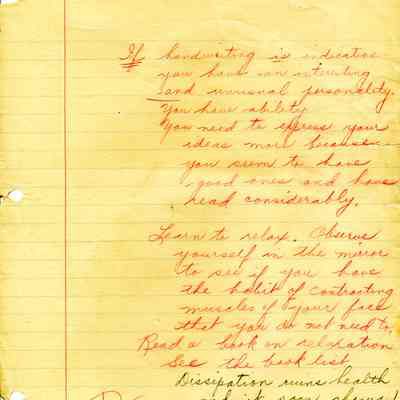 If handwriting is indicative
you have an interesting
and unusual personality.
You have ability
You need to express your
ideas more because
you seem to have
good ones and have
read considerably.
Learn to relax. Observe
yourself in the mirror
to see if you have
the habit of contracting
muscles of your face
that you do not need to.
Read a book on relaxation
See the book list
Dissipation ruins health
and it soon shows